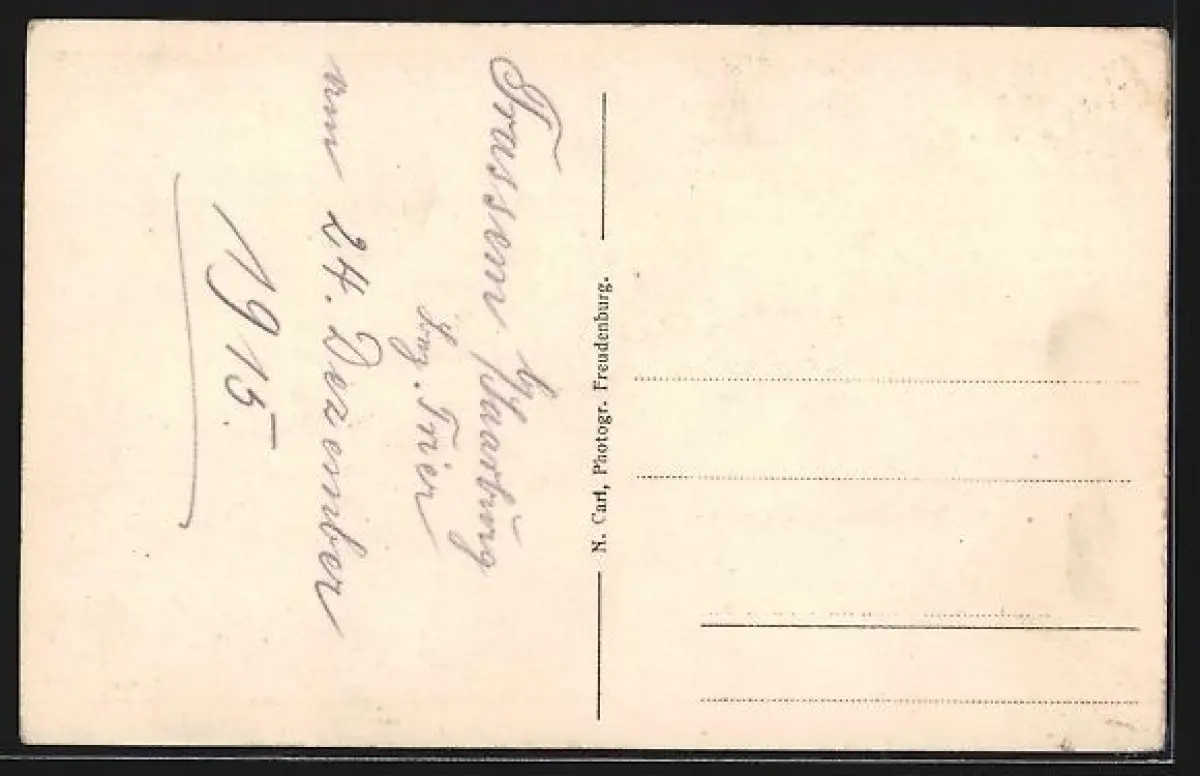 Trassem b/Saarburg
Bez. Trier
am 24. Dezember
1915.
N. Carl, Photogr. Freudenburg.